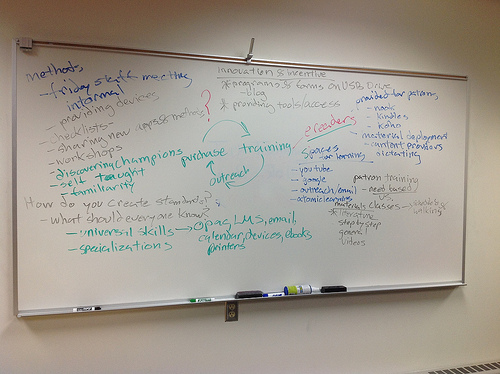 methods
- friday staff meeting
informal
- providing devices
- checklists -
- sharing new apps & methods
?
- workshops
- discovering champions
- self taught
- familiarity
How do you create standards?
- what should everyone know
- universal skills → opac, LMS, email,
calendar, devices, ebooks
printers
- specializations
purchase training
outreach
innovation & incentive
* programs & forms on USB Drive
- blog
* providing tools/access
ereaders
spaces
for learning
- youtube
- google
- outreach/email
- atomic learning
provided for patrons
- nook
- kindles
- kobo
- material deployment
- content providers
patron training
- need based
vs.
materials classes -
* literature
step by step
general
videos